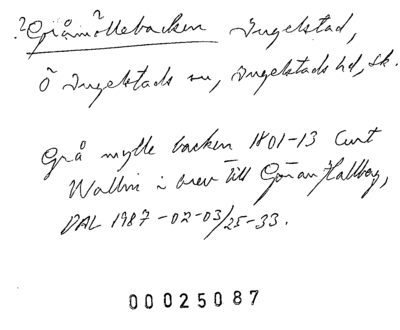 ? Gråmöllebacken Ingelstad,
Ö Ingelstads sn, Ingelstads hd, Sk.
Grå mylle backen 1801-13 Curt
Wallin i brev till Göran Hallberg,
DAL 1987-02-03/25-33.
00025087